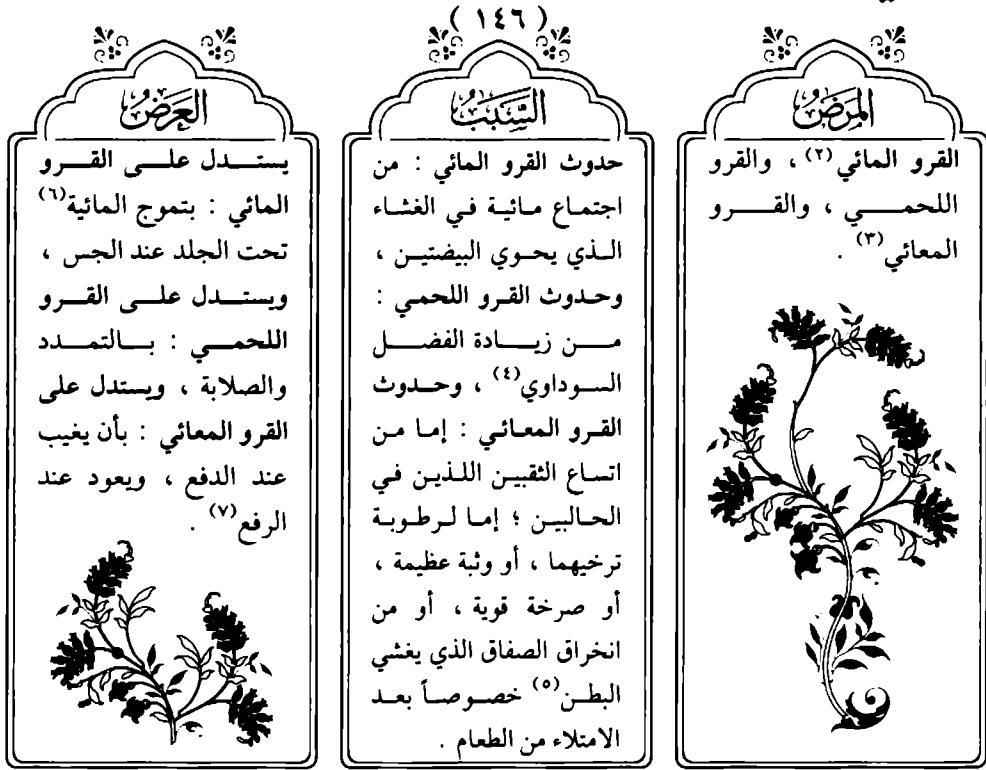 ( ١٤٦ )
المرض
القرو المائي(٢) ، والقرو
اللحمي ، والقرو
المعائي(٣) .
السبب
حدوث القرو المائي : من
اجتماع مائية في الغشاء
الذي يحوي البيضتين ،
وحدوث القرو اللحمي :
من زيادة الفضل
السوداوي(٤) ، وحدوث
القرو المعائي : إما من
اتساع الثقبين اللذين في
الحالبين ؛ إما لرطوبة
ترخيهما ، أو وثبة عظيمة ،
أو صرخة قوية ، أو من
انخراق الصفاق الذي يغشي
البطن(٥) خصوصاً بعد
الامتلاء من الطعام .
العرض
يستدل على القرو
المائي : بتموج المائية(٦)
تحت الجلد عند الجس ،
ويستدل على القرو
اللحمي : بالتمدد
والصلابة ، ويستدل على
القرو المعائي : بأن يغيب
عند الدفع ، ويعود عند
الرفع(٧) .